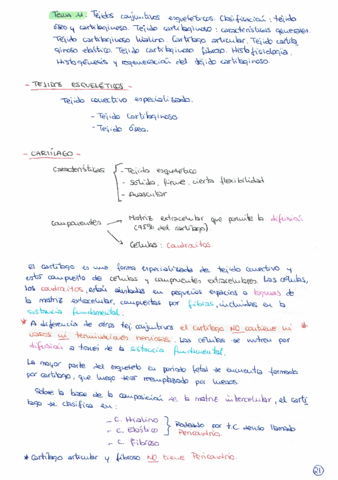 Tema 11: Tejidos conjuntivos esqueléticos. Clasificación: tejido
óseo y cartilaginoso. Tejido cartilaginoso: características generales.
Tejido cartilaginoso hialino. Cartílago articular. Tejido cartila
ginoso elástico. Tejido cartilaginoso fibroso. Histofisiología.
Histogénesis y regeneración del tejido cartilaginoso.
- TEJIDOS ESQUELÉTICOS -
Tejido conectivo especializado.
- Tejido cartilaginoso
- Tejido óseo.
- CARTÍLAGO -
Características
- Tejido esquelético
- Sólida, firme, cierta flexibilidad
- Avascular
Componentes
Matriz extracelular que permite la difusión
(95% del cartílago)
Células: Condrocitos.
El cartílago es una forma especializada de tejido conectivo y
está compuesto de células y componentes extracelulares. Las células,
los condrocitos, están aisladas en pequeños espacios o lagunas de
la matriz extracelular, compuestas por fibras incluidas en la
sustancia fundamental.
* A diferencia de otros tej. conjuntivos el cartílago NO contiene ni
vasos ni terminaciones nerviosas. Las células se nutren por
difusión a través de la sustancia fundamental.
La mayor parte del esqueleto en período fetal se encuentra formada
por cartílago, que luego será reemplazado por huesos.
Sobre la base de la composición de la matriz intercelular, el cartí
lago se clasifica en:
- C. Hialino
- C. Elástico
- C. Fibroso
Rodeado por t.c denso llamado
Pericondrio.
* Cartílago articular y fibroso NO tiene Pericondrio.
21